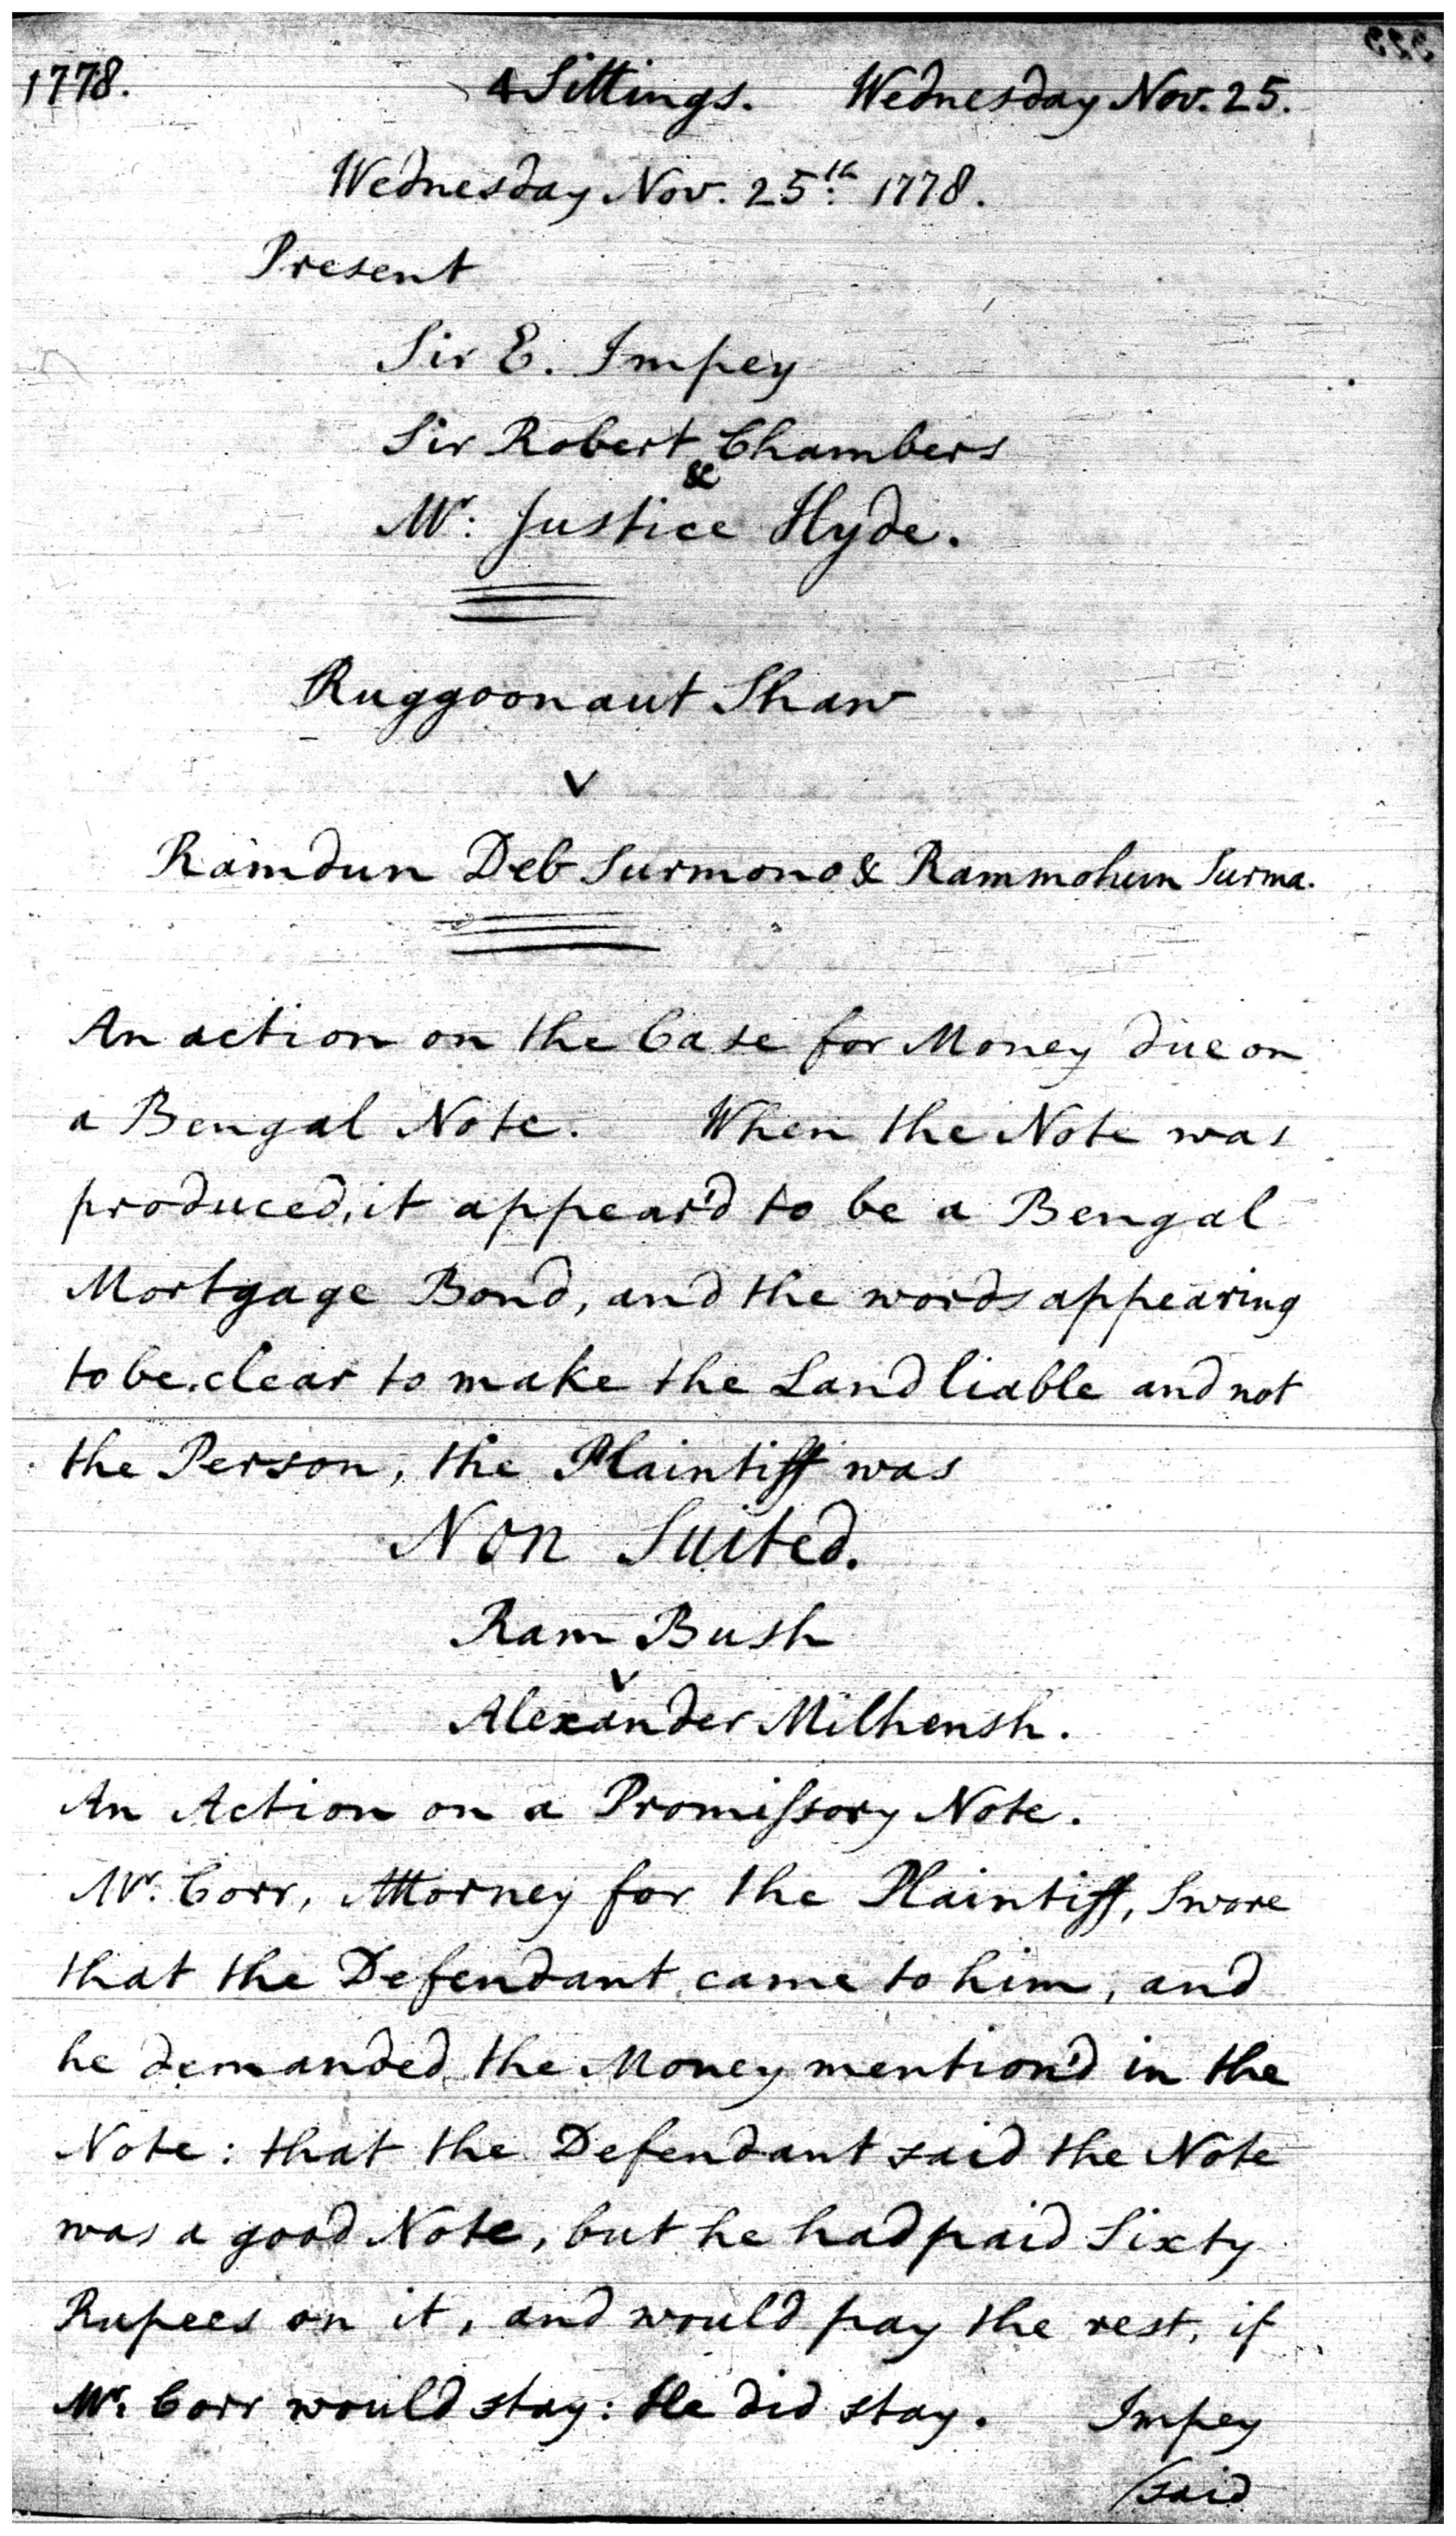 1778. 4 Sittings. Wednesday Nov. 25.
Wednesday Nov. 25th. 1778.
Present
Sir E. Impey
Sir Robert Chambers
&
Mr: Justice Hyde.
Ruggoonaut Shaw
v
Ramdun Deb Surmono & Rammohun Surma.
An action on the Case for Money due on
a Bengal Note. When the Note was
produced, it appear'd to be a Bengal
Mortgage Bond, and the words appearing
to be clear to make the Land liable and not
the Person, the Plaintiff was
Non Suited.
Ram Bush
v
Alexander Milhensh.
An Action on a Promiſsory Note.
Mr. Corr, Attorney for the Plaintiff, Swore
that the Defendant came to him, and
he demanded the Money mention'd in the
Note: that the Defendant said the Note
was a good Note, but he had paid Sixty
Rupees on it, and would pay the rest, if
Mr. Corr would stay: He did stay. Impey
/said